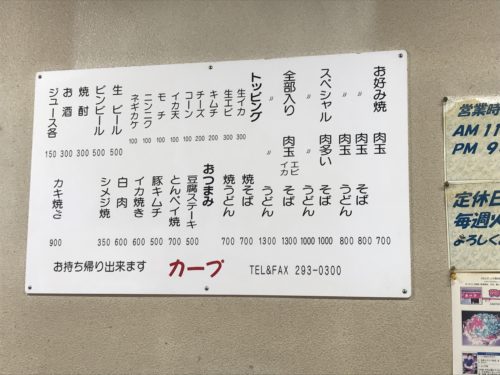 お好み焼 肉玉 700
〃 肉玉 そば 800
〃 肉玉 うどん 800
スペシャル 肉多い そば 1000
〃 〃 うどん 1000
全部入り 肉玉 イカ エビ そば 1300
〃 〃 うどん 1300
焼そば 700
焼うどん 700
トッピング
生イカ 200
生エビ 200
キムチ 100
チーズ 100
コーン 100
イカ天 100
モチ 100
ニンニク 100
ネギカケ 100
おつまみ
豆腐ステーキ 500
とんペイ焼 700
豚キムチ 500
イカ焼き 600
白肉 600
シメジ焼 350
カキ焼き 900
生ビール 500
ビンビール 500
焼酎 300
お酒 300
ジュース各 150
お持ち帰り出来ます カープ TEL&FAX 293-0300
営業時
AM 11
PM 9
定休日
毎週火
よろしく